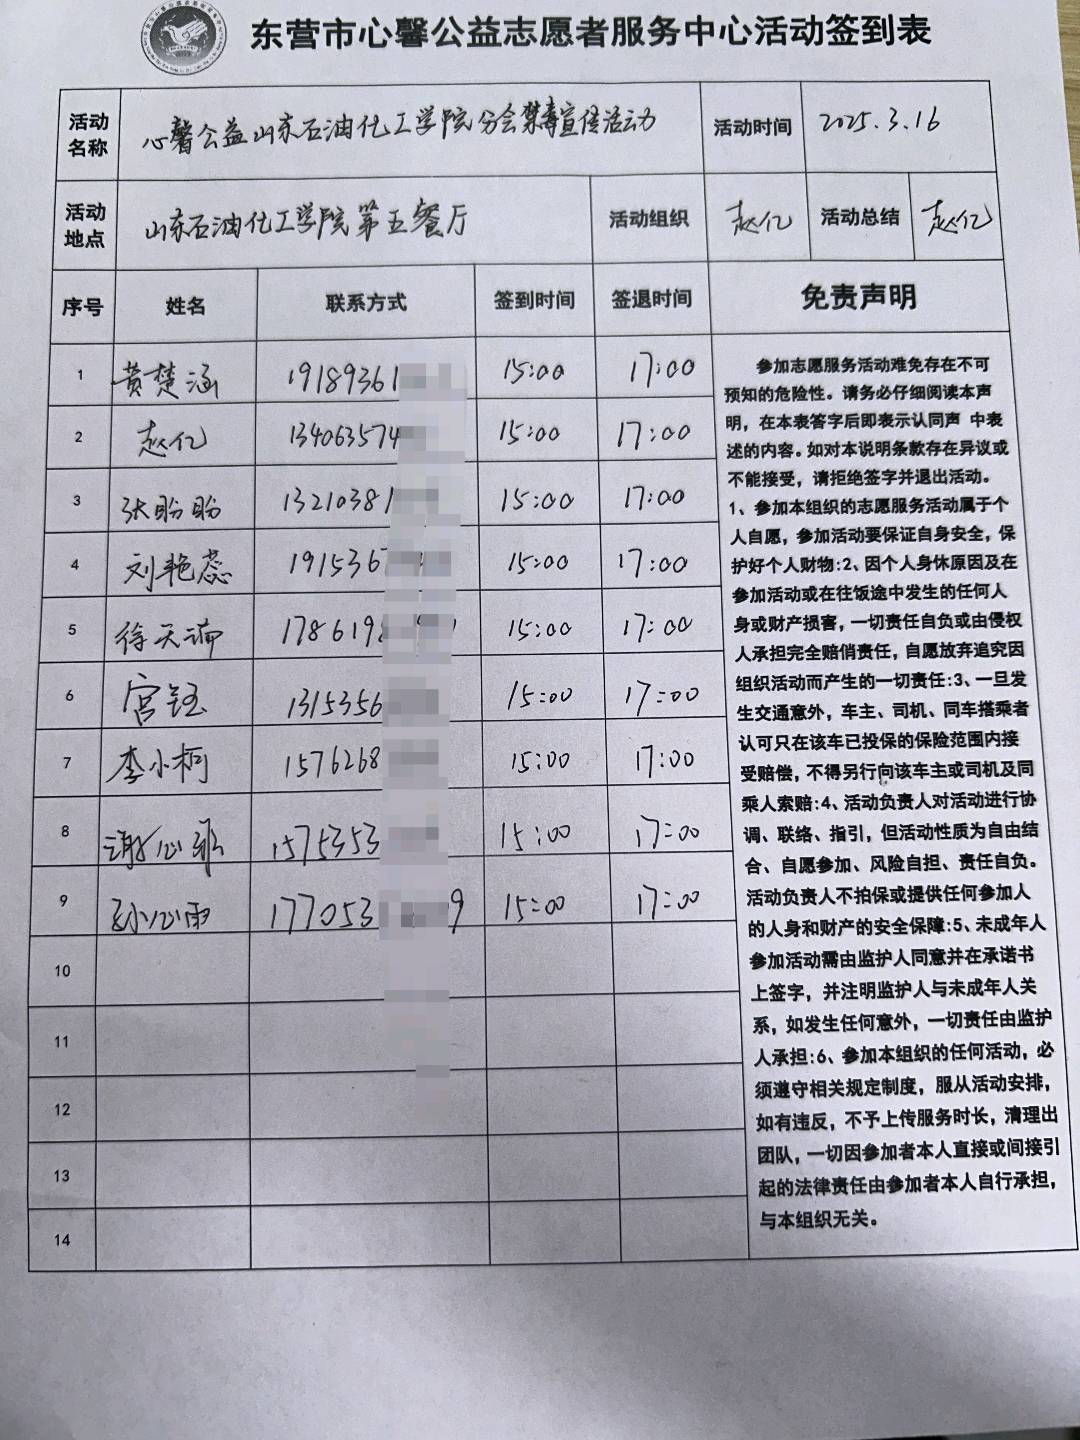 东营市心馨公益志愿者服务中心活动签到表
活动名称 心馨公益山东石油化工学院分会禁毒宣传活动 活动时间 2025.3.16
活动地点 山东石油化工学院第五餐厅 活动组织 赵亿 活动总结 赵亿
序号 姓名 联系方式 签到时间 签退时间 免责声明
1 黄楚涵 19189361 15:00 17:00
2 赵亿 134063574 15:00 17:00
3 张盼盼 13210381 15:00 17:00
4 刘艳蕊 1915367 15:00 17:00
5 徐天瑜 1786198 15:00 17:00
6 宫钰 1315356 15:00 17:00
7 李小柯 1576268 15:00 17:00
8 谢心 1575353 15:00 17:00
9 孙心雨 177053 9 15:00 17:00
10
11
12
13
14
参加志愿服务活动难免存在不可
预知的危险性。请务必仔细阅读本声
明，在本表签字后即表示认同声 中表
述的内容。如对本说明条款存在异议或
不能接受，请拒绝签字并退出活动。
1、参加本组织的志愿服务活动属于个
人自愿，参加活动要保证自身安全，保
护好个人财物:2、因个人身休原因及在
参加活动或在往饭途中发生的任何人
身或财产损害，一切责任自负或由侵权
人承担完全赔俏责任，自愿放弃追究因
组织活动而产生的一切责任:3、一旦发
生交通意外，车主、司机、同车搭乘者
认可只在该车已投保的保险范围内接
受赔偿，不得另行向该车主或司机及同
乘人索赔:4、活动负责人对活动进行协
调、联络、指引，但活动性质为自由结
合、自愿参加、风险自担、责任自负。
活动负责人不拍保或提供任何参加人
的人身和财产的安全保障:5、未成年人
参加活动需由监护人同意并在承诺书
上签字，并注明监护人与未成年人关
系，如发生任何意外，一切责任由监护
人承担:6、参加本组织的任何活动，必
须遵守相关规定制度，服从活动安排，
如有违反，不予上传服务时长，清理出
团队，一切因参加者本人直接或间接引
起的法律责任由参加者本人自行承担，
与本组织无关。